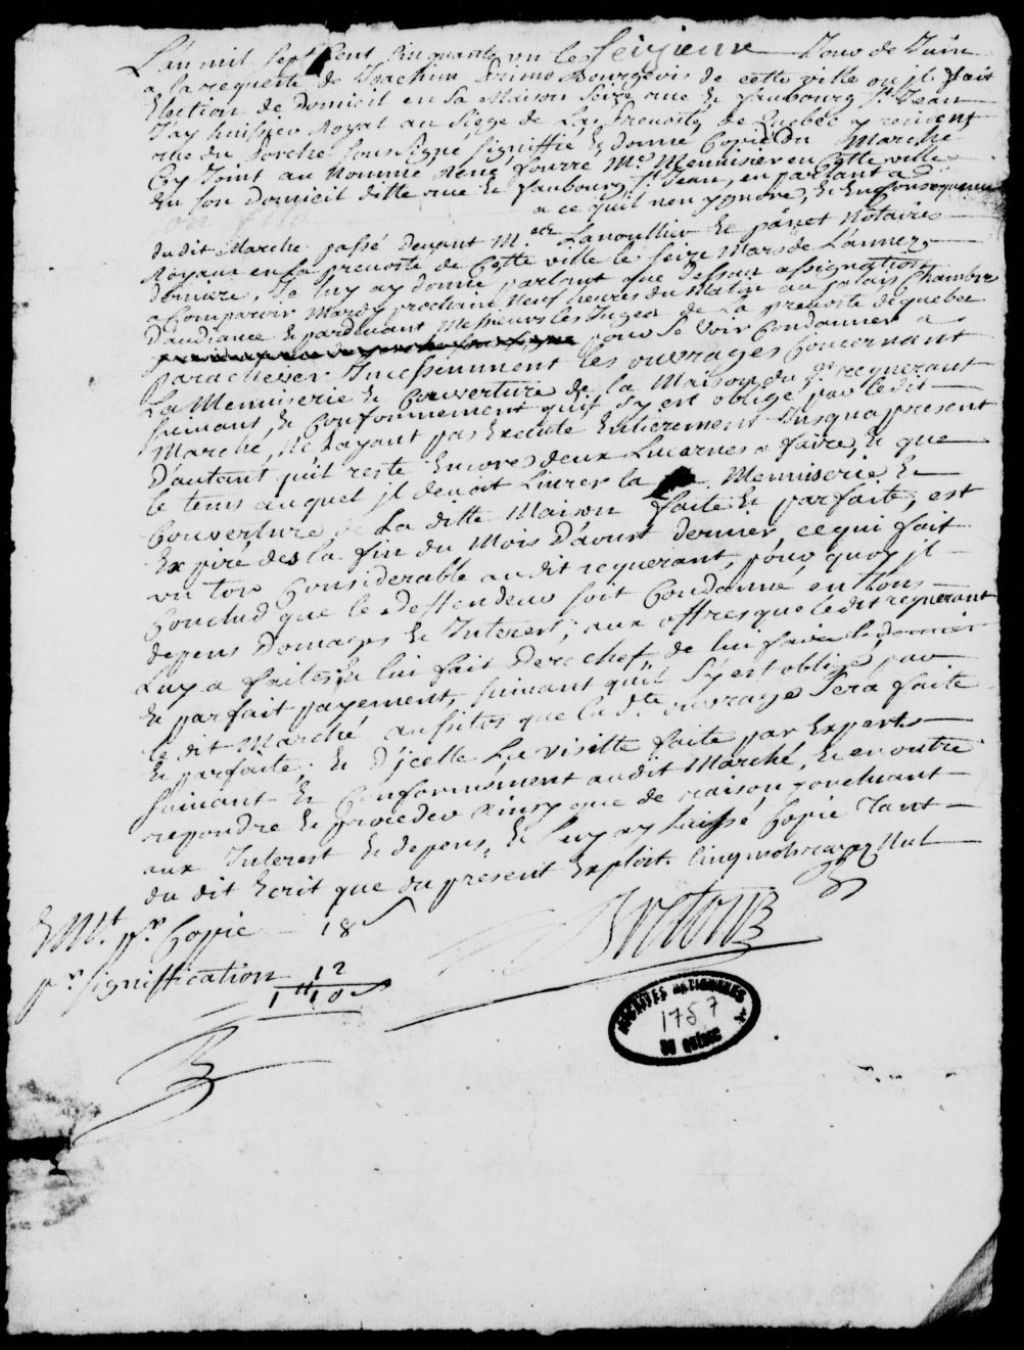 L'an mil sept Cent Cinquante un le seizieme Jour de Juin
a la requeste de Joachim Primo Bourgeois de cette ville ou il fait
Election de Domicil en sa Maison size rue & faubourg St Jean
J'ay huissier Royal au Siege de La prevosté de Quebec y resident
rue du Porche soussigné, signiffié & donné Copie du Marché
Cy Joint au nommé René fourré Me Menuisier en Cette ville
en son Domicil ditte rue & faubourg St Jean, en parlant a
a ce qu'il n'en ignore, & En Consequence
du dit Marché passé devant M.e Lanoullier & panet Notaires
Royaux en La prevosté de Cette ville le seize Mars de L'année
Derniere, Je luy ay donné parlant que Dessus assignation
a Comparoir Mardy prochain Neuf heures du Matin au palais Chambre
D'audiance & pardevant Messieurs les Juges de La prevosté de quebec
pour se Voir Condanner a
parachever Incessemment les ouvrages Concernant
La Menuiserie & Couverture de la Maison du dt requerant
suivant, & Conformement qu'il s'y est obligé par le dit
Marché, Ne L'ayant pas Executé Entierement Jusqu'a present
D'autant qu'il reste Encores deux Lucarnes a faire, & que
le tems auquel il devoit Livrer la Menuiserie &
Couverture de La ditte Maison faite & parfaite, est
Expiré des la fin du Mois D'aoust dernier, ce qui fait
un tort Considerable au dit requerant, pour quoy il
Conclud que le Deffendeur soit Condanné en tous
depens Domages & Interest; aux offres que le dit requerant
Luy a faites & lui fait Derechef de lui faire le dernier
& parfait payement, suivant qu'il s'y est obligé par
le dit Marché aussitos que la dte ouvrage sera faite
& parfaite; & D'icelle La visitte faite par Experts
suivant & Conformement audit Marché, & en outre
repondre & proceder ainsy que de raison, concluant
aux Interest & depens, & Luy ay Laissé Copie Tant
du dit Ecrit que du present Exploit. Cinq mots rayez Nul
Emt. pr. Copie - 18 s
pr signiffication 12
1 tt 10 s
ARCHIVES NATIONALES
1757
DU QUÉBEC